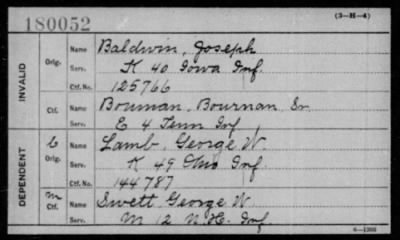 180052 (3-H-4)
INVALID
Orig. Name Baldwin, Joseph
Serv. K 40 Iowa Inf.
Ctf. No. 125766
Ctf. Name Bouman, Bournan Sr
Serv. E 4 Tenn Inf
DEPENDENT
C
Orig. Name Lamb, George W.
Serv. K 49 Ohio Inf.
Ctf. No. 144787
m
Ctf. Name Swett George W.
Serv. M 12 N.H. Inf.
6-1380